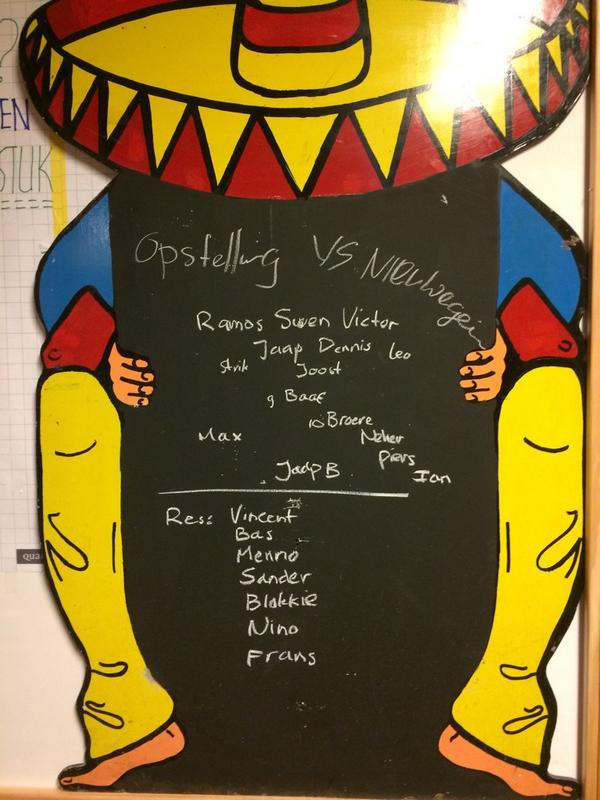 ?
EN
STUK
Opstelling VS Nieuwegein
Ramos Swen Victor
Jaap Dennis Leo
Strik Joost
9 Baaf
10 Broere
Max Neher
Piers
Jaap B Ian
Res: Vincent
Bas
Menno
Sander
Blokkie
Nino
Frans
qua